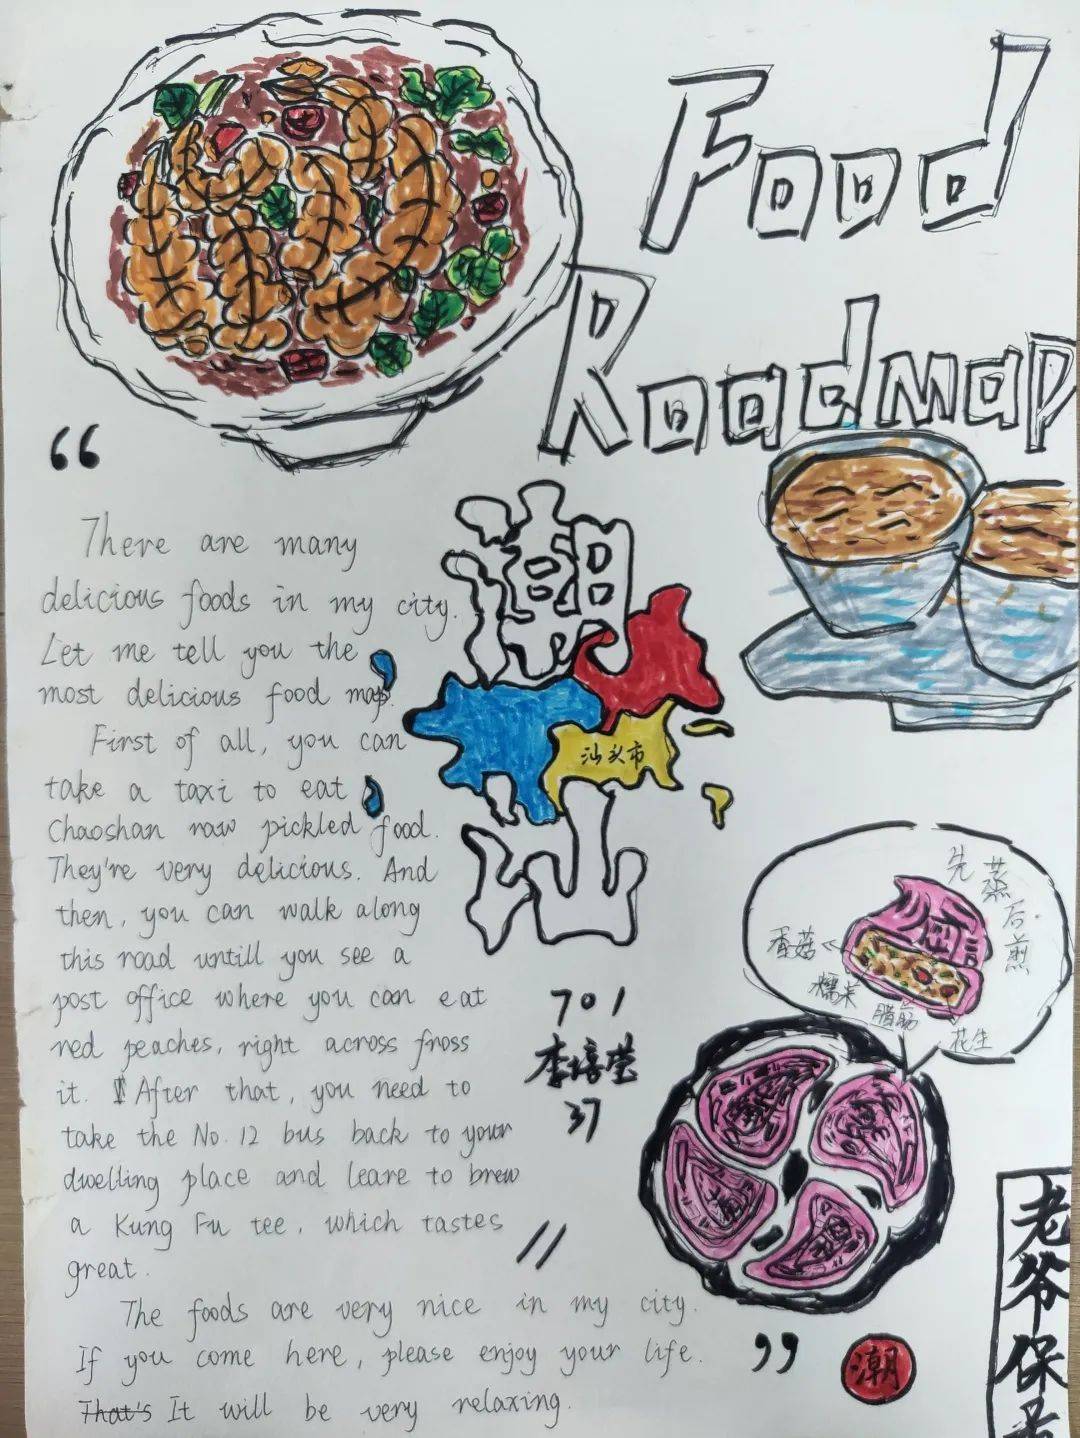 Food
Roadmap
“
There are many
delicious foods in my city.
Let me tell you the
most delicious food map.
First of all, you can
take a taxi to eat
Chaoshan raw pickled food.
They're very delicious. And
then, you can walk along
this road untill you see a
post office where you can eat
red peaches, right across fross
it. After that, you need to
take the No.12 bus back to your
dwelling place and leare to brew
a Kung Fu tee, which tastes
great.
The foods are very nice in my city.
If you come here, please enjoy your life.
That's It will be very relaxing.
”
潮
汕头市
汕
701
李培莹
37
先蒸后煎
香菇
糯米
腊肠
花生
潮
老爷保